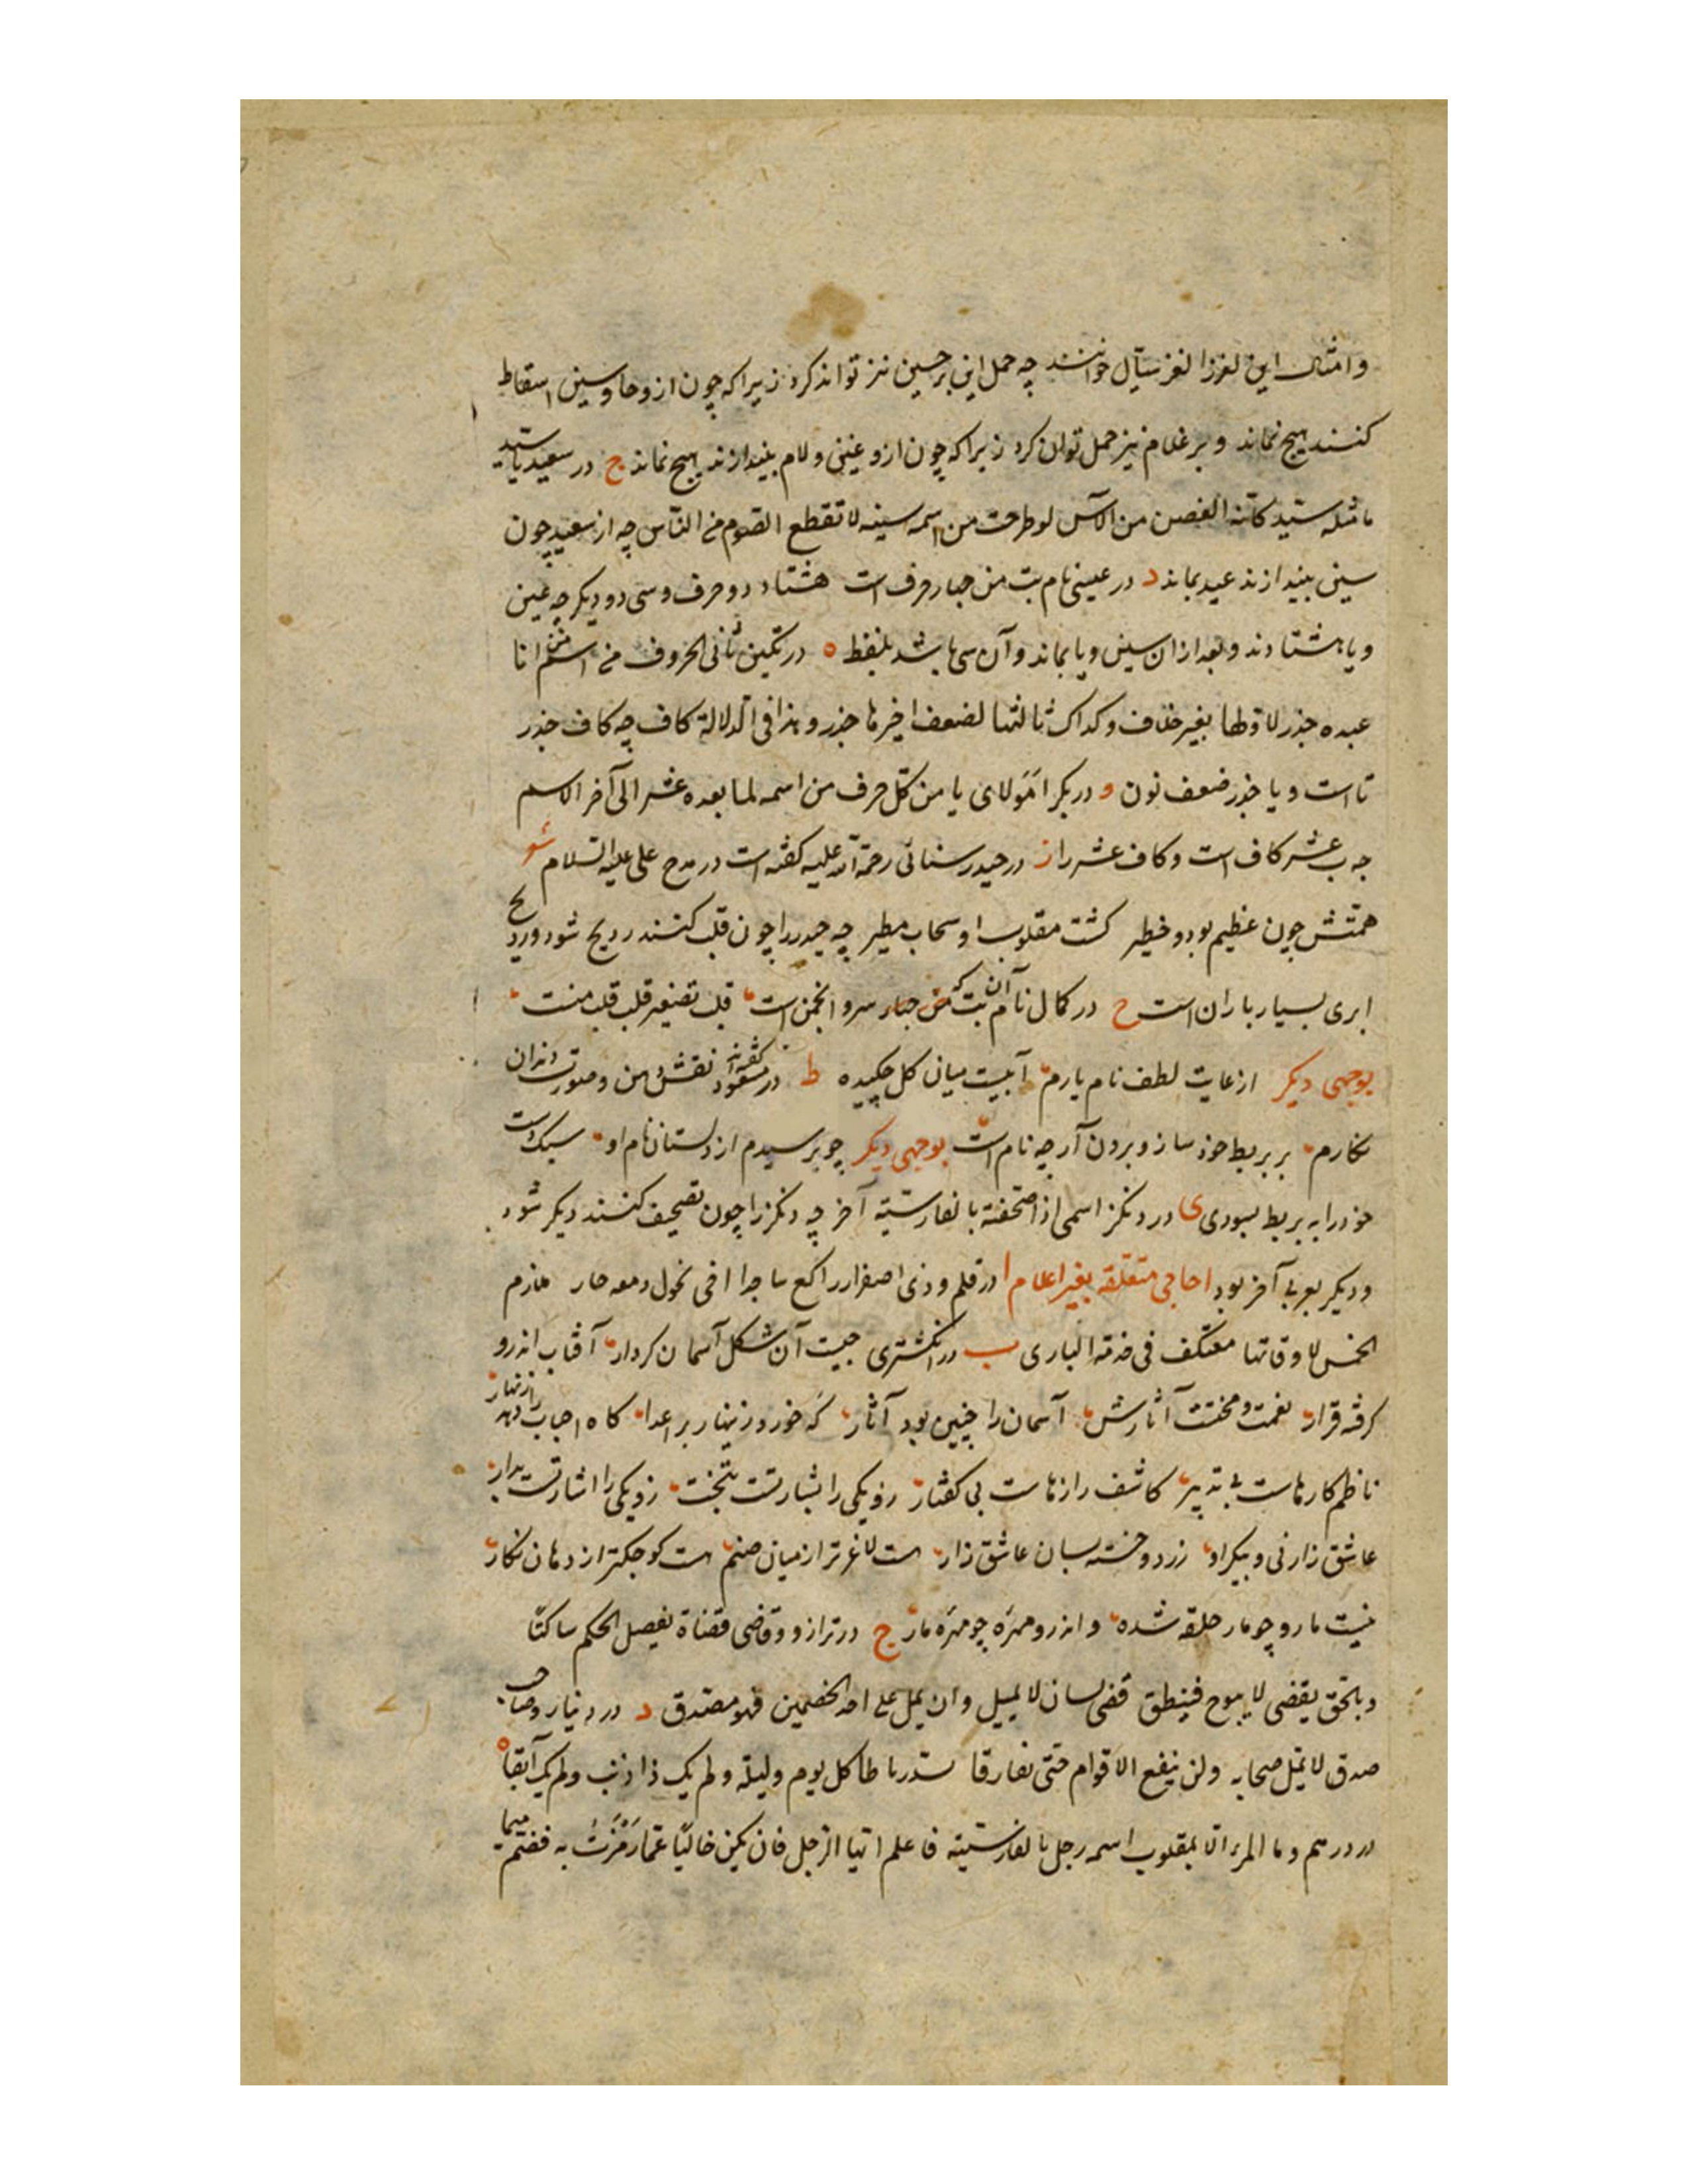 و امثال این لغز را لغز سیّال خوانند چه حمل این بر حسین نیز تواند کرد زیرا که چون ازو حا و سین اسقاط
کنند هیچ نماند و بر غلام نیز حمل توان کرد زیرا که چون ازو غین و لام بیندازند هیچ نماند ج در سعید یا سید
ما مثله سید کانه الغصن من الآس لو طرحت من اسمه سینه لا تقطع الصوم من الناس چه از سعید چون
سین بیندازند عید بماند د در عیسی نام بت من چهار حرف است هشتاد دو حرف و سی دو دیگر چه عین
و یا هشتادند و بعد از آن سین و یا بماند و آن سی باشد بلفظ ه در تکین ثانی الحروف من اسم انا
عبده جذر لاولها بغیر خلاف و کداک ثالثها لضعف اخیرها جذر و هذا فی الدلالة کاف چه کاف جذر
تا است و یا جذر ضعف نون و در بکر امولای یا من کل حرف من اسمه لما بعده عشر الی آخر الاسم
چه ب عشر کاف است و کاف عشر را ز در حیدر سنائی رحمة الله علیه کفته است در مدح علی علیه السلام شو
همتش چون عظیم بود و خطیر کشت مقلوب او سحاب مطیر چه حیدر را چون قلب کنند ردیح شود و ردیح
ابری بسیار باران است ح در کمال نام آن بت که من چهار سرو انجمن است قلب تصغیر قلب قلب منست
بوجهی دیکر از غایت لطف نام یارم آبیست میان کل چکیده ط در مسعود کفته اند نقش دهن و صورت دندان
نکارم بر بربط خود ساز و برون آر چه نام است بوجهی دیکر چو پرسیدم از دلستان نام او سبک دست
خود را به بربط بسودی ی در دنکز اسمی اذا صحفته بالفارسیة آخر چه دنکز را چون تصحیف کنند دیکر شود
و دیکر بعربی آخر بود احاجی متعلقه بغیر اعلام ا در قلم و ذی اصفرار راکع ساجد اخی نحول دمعه جار ملازم
الخمس لاوقاتها معتکف فی خدمة الباری ب در انکشتری چیست آن شکل آسمان کردار آفتاب اندرو
کرفته قرار نعمت و محنتت آثارش آسمان را چنین بود آثار که خورد زینهار بر اعدا کاه احباب را دهد زنهار
ناظم کارهاست بی تدبیر کاشف رازهاست بی کفتار زو یکی را بشارتست بتخت زو یکی را اشارتست بدار
عاشق زار نی و پیکر او زرد و خسته بسان عاشق زار هست لاغرتر از میان صنم هست کوچکتر از دهان نکار
نیست مار و چو مار حلقه شده و اندرو مهره چو مهره مار ج در ترازو و قاضی قضاة یفصل الحکم ساکتا
و بالحق یقضی لا یبوح فینطق قضی بلسان لا یمیل و ان یمل علی احد الخصمین فهو مصدق د در دینار و صاحب
صدق لا یمل صحابه و لن ینفع الاقوام حتی تفارقا کل یوم و لیلة و لم یک ذا ذنب و لم یک آبقا ه
در درهم و ما المرء الا بمقلوب اسمه رجل بالفارسیه فاعلم ایها الرجل فان یکن خالیا عما رمزت به فضم میما